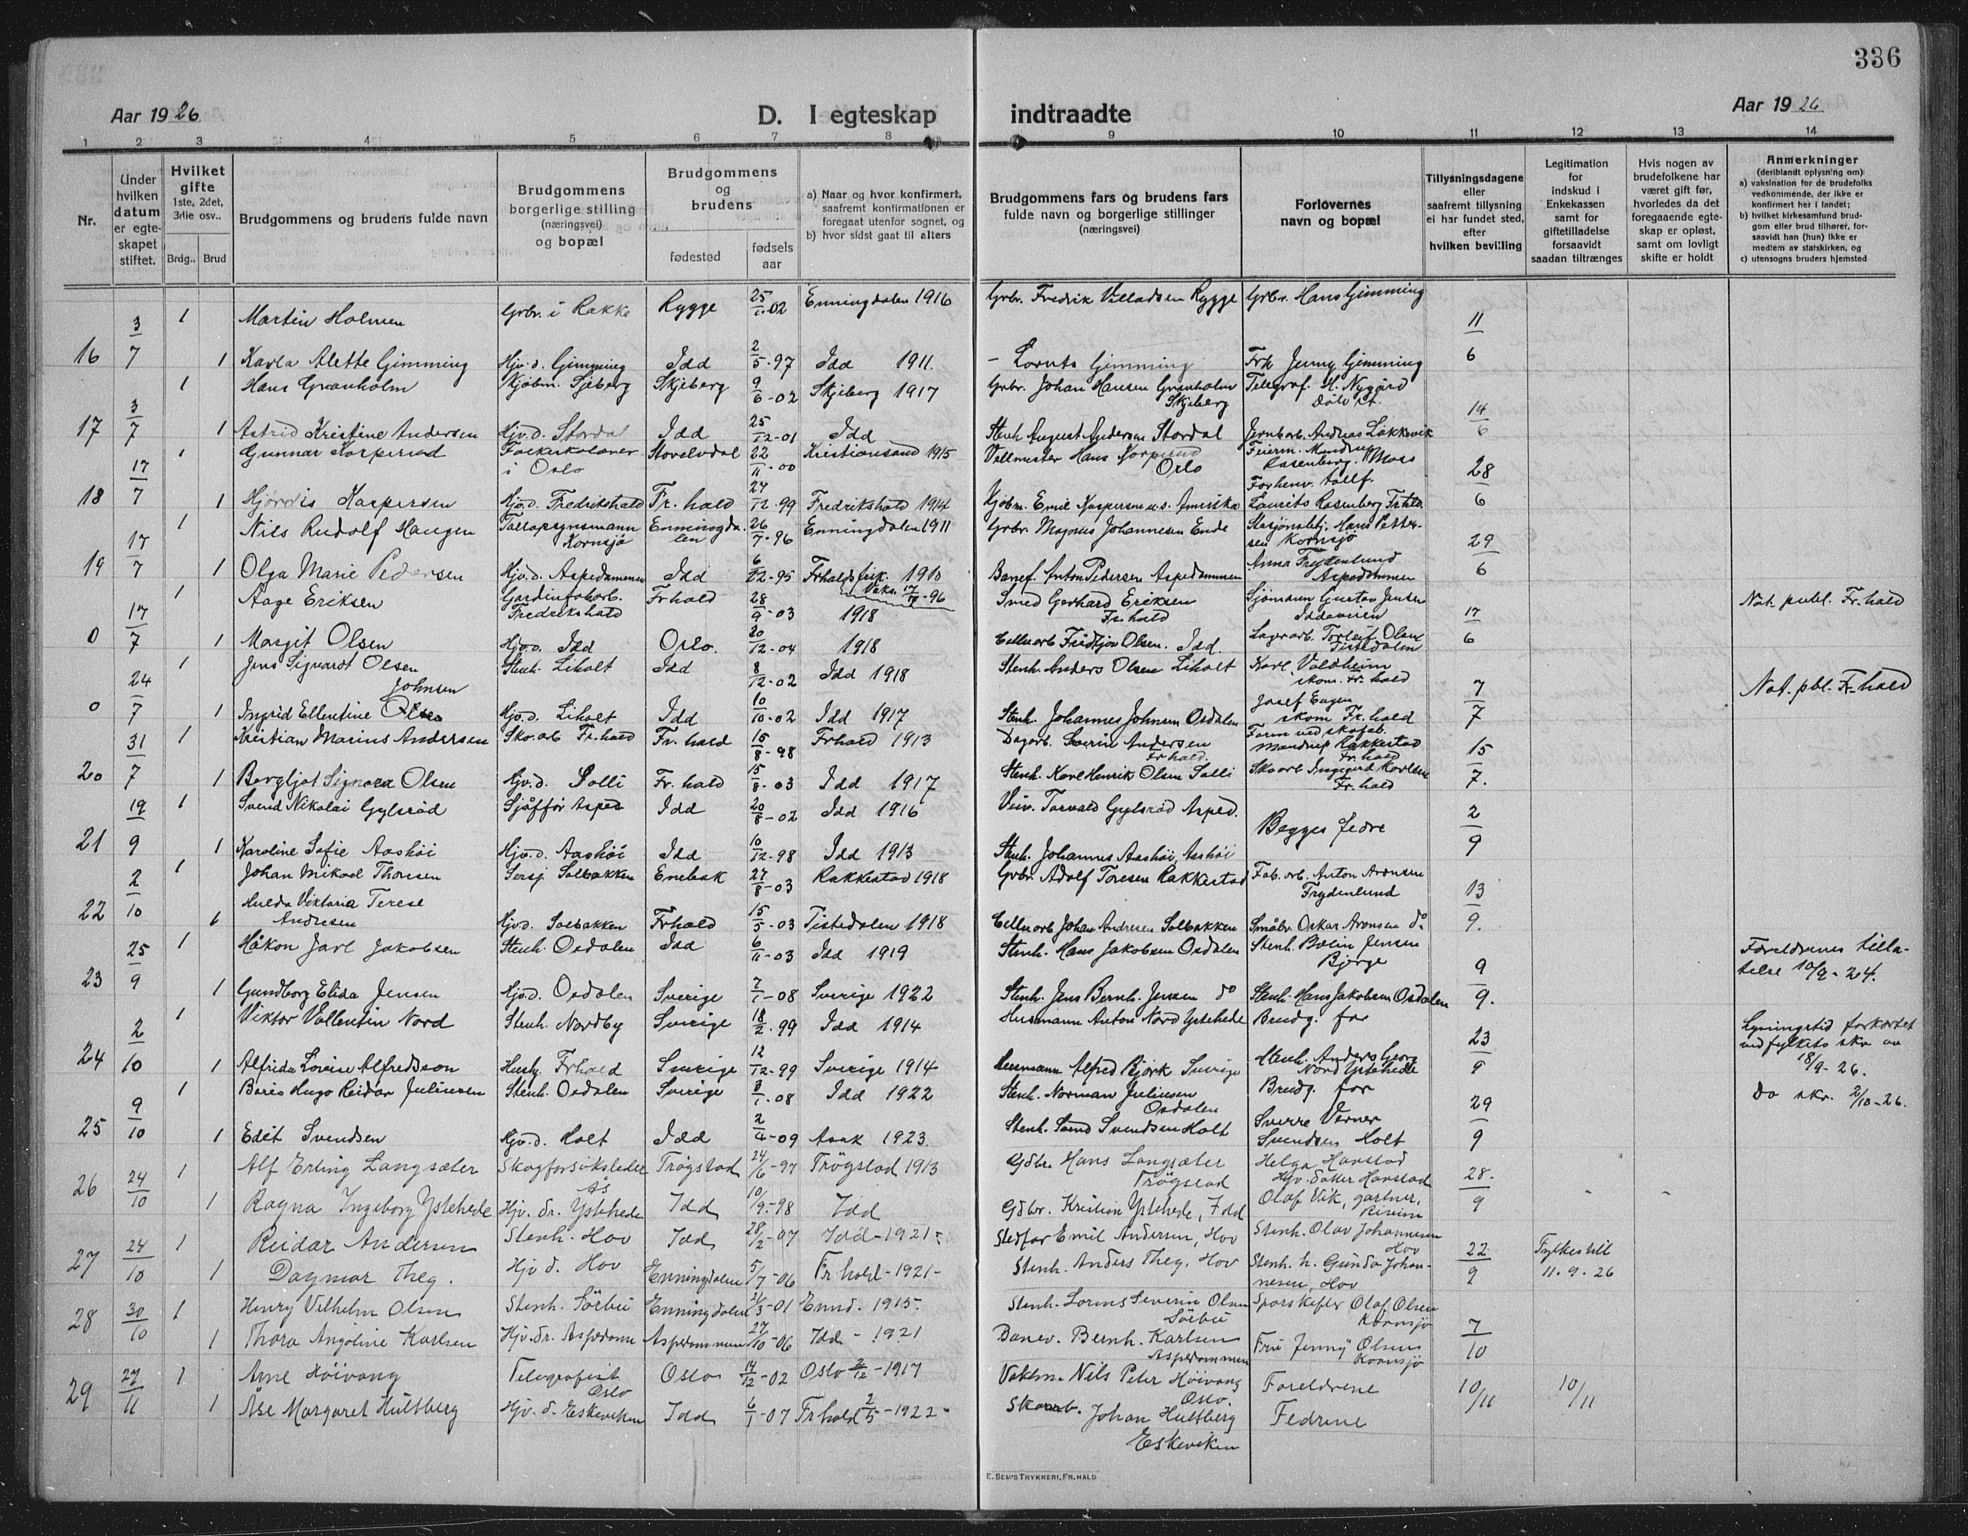 336
Aar 1926 D. I egteskap indtraadte Aar 1926
1 2 3 4 5 6 7 8 9 10 11 12 13 14
Nr.
Under hvilken datum er egteskapet stiftet.
Hvilket gifte 1ste, 2det, 3die osv..
Brdg.. Brud
Brudgommens og brudens fulde navn
Brudgommens borgerlige stilling (næringsvei) og bopæl
Brudgommens og brudens
fødested fødselsaar
a) Naar og hvor konfirmert, saafremt konfirmationen er foregaat utenfor sognet, og
b) hvor sidst gaat til alters
Brudgommens fars og brudens fars fulde navn og borgerlige stillinger (næringsvei)
Forlovernes navn og bopæl
Tillysningsdagene eller saafremt tillysning ei har fundet sted, efter hvilken bevilling
Legitimation for indskud i Enkekassen samt for giftetilladelse forsaavidt saadan tiltrænges
Hvis nogen av brudefolkene har været gift før, hvorledes da det foregaaende egteskap er opløst, samt om lovligt skifte er holdt
Anmerkninger (deriblandt oplysning om)
a) vaksination for de brudefolks vedkommende, der ikke er konfirmert her i landet;
b) hvilket kirkesamfund brudgom eller brud tilhører, forsaavidt han (hun) ikke er medlem av statskirken, og
c) utensogns bruders hjemsted
1 Martin Holmen Grbr. i Rakke Rygge 25/1-02 Enningdalen 1916 Grbr. Fredrik Villadsen Rygge Grbr. Hans Gimming
16 3/7 1 Karla Alette Gimming Hjv. d. Gimming Idd 2/5-97 Idd 1911. Gimming Frk Jenny Gimming 11/6
1 Hans Granholm Kjøbm. Skjeberg 9/6-02 Skjeberg 1917 Grbr. Johan Hansen Granholm Skjeberg Telegraf. H. Nygård
17 3/7 1 Astrid Kristine Andersen Hjv. d. Stordal Idd 25/12-01 Idd Stenh. August Andersen Stordal Jernb arb. Andreas 14/6
1 Gunnar i Oslo 22/11-00 Kristiansand 1915 Hans Oslo Rosenberg. Moss
18 17/7 1 Hjørdis Kaspersen Hjv. d. Fredrikshald Fr. hald 27/12-99 Fredrikshald 1914 Kjøbm. Emil Kaspersen Amerika Laurits Rosenberg Fr. hld 28/6
1 Nils Rudolf Haugen Kornsjø Enningdalen 26/7-96 Enningdalen 1911 Grbr. Magnus Johannesen Ende Hans Pettersen Kornsjø
19 17/7 1 Olga Marie Pedersen Hjv. d. Aspedammen Idd 6/12-95 1910 Anton Pedersen Aspedammen Anna Frydenlund Aspedammen 29/6
1 Aage Eriksen Fredrikshald Frhald 28/9-03 1918 Smed Gerhard Eriksen Fr. hald Sjømann Gustav Jensen Iddeveien Not. publ. Fr. hald
0 17/7 1 Margit Olsen Hjv. d. Idd Oslo. 20/12-04 1918 Cellu arb. Fridtjov Olsen. Idd. Lager arb. Torleif Olsen Tistedalen 17/6
1 Jens Sigvardt Olsen Stenh. Liholt Idd 8/12-02 Idd 1918 Stenh. Anders Olsen Liholt Karl Valdheim skom. Fr. hald Not. pbl. Fr-hald
0 24/7 1 Ingrid Ellentine Johnsen Hjv. d. Liholt Idd 10/10-02 Idd 1917 Stenh. Johannes Johnsen Osdalen Josef skom Fr. hald 7/7
1 Kristian Marius Andersen Sko. arb Fr. hald Fr. hald 15/8-98 Frhald 1913 Dagarb. Severin Andersen Fr hald. Form ved skofab. Rakkestad Fr. hald
20 31/7 1 Bergljot Signora Olsen Hjv. d. Solli Fr. hald 15/8-03 Idd 1917 Stenh. Karl Henrik Olsen Solli Sko arb Fr. hald 15/7.
1 Svend Nikolai Gylsrød Sjåffør Asped Idd 20/8-02 Idd 1916 Torvald Gylsrød Asped.
21 19/9 1 Karoline Sofie Aashøi Hjv. d. Aashøi Idd 10/12-98 Idd 1913 Stenh. Johannes Aashøi, Aashøi Begges fedre 2/9
1 Johan Mikael Thoresen Sersj Solbakken Enebak 27/8-03 Rakkestad 1918 Grbr. Adolf Toresen Rakkestad Fab. arb. Anton Aronsen Frydenlund
22 2/10 1 Hulda Viktoria Terese Andresen Hjv. d. Solbakken Frhald 15/5-03 Tistedalen 1918 Cellu arb Johan Andresen Solbakken Småbr. Oskar Aronsen do 13/9.
1 Håkon Jarl Jakobsen Stenh. Osdalen Idd 6/11-03 Idd 1919 Stenh. Hans Jakobsen Osdalen Stenh. Jensen Bjerge Foreldrenes tillatelse 10/9-24.
23 25/9 1 Gundborg Elida Jensen Hjv. d. Osdalen Sverige 7/1-08 Sverige 1922 Stenh. Jens Bernh. Jensen do Stenh. Hans Jakobsen Osdalen 9/9.
1 Viktor Vallentin Nord Stenh. Nordby Sverige 18/2-99 Idd 1914 Husmann Anton Nord Ystehede Brudg. far Lysningstid forkortet ved fylkets skr. av 18/9-26.
24 2/10 1 Alfrida Lovise Alfredsson Frhald Sverige 12/12-99 Sverige 1914 Alfred Björk Sverige Stenh. Anders Georg Nord Ystehede 23/9
1 Boris Hugo Reidar Juliusen Stenh. Osdalen Sverige 8/1-08 Idd 1922 Stenh. Norman Juliusen Osdalen Brudg. far Do skr. 2/10-26.
25 9/10 1 Edit Svendsen Hjv. d. Holt Idd 2/4-09 Asak 1923. Stenh. Svendsen Holt Sverre Verner Svendsen Holt 29/9
1 Alf Erling Langsæter Skogforsøksleder Ås Trøgstad 24/6-97 Trøgstad 1913 Gdbr. Hans Langsæter Trøgstad Helga Havstad
26 24/10 1 Ragna Ingeborg Ystehede Hjv. dr. Ystehede Idd 10/9-98 Idd Gdbr. Kristian Ystehede, Idd Olaf Vik, gartner, 28/9
1 Reidar Andersen Stenh. Hov Idd 28/2-07 Idd-1921- Emil Andersen, Hov Stenh. Olav Johannesen Hov
27 24/10 1 Dagmar Theg. Hjv d. Hov Enningdalen 5/7-06 Fr hald-1921- Stenh. Anders Theg, Hov Stenh. h. Gunda Johannesen, Hov 22/9 Fylkes till 11.9.26
1 Henry Vilhelm Olsen Stenh. Sørbø Enningdalen 21/3-01 Ennd. 1915- Stenh. Severin Olsen Sørbø Olaf Olsen Kornsjø
28 30/10 1 Thora Angoline Karlsen Hjv. dr. Aspedammen 27/10-06 Idd-1921 Banev. Bernh. Karlsen Aspedammen Fru Jenny Olsen Kornsjø 7/10
1 Arne Høivang Telegrafist Oslo Oslo 14/12-02 Oslo 2/12-1917 Nils Peter Høivang Oslo. Foreldrene
29 27/11 1 Åse Margaret Hultberg Hjv. d. Eskeviken Idd 6/1-07 Fr hald 2/5-1922- Skoarb. Johan Hultberg Eskeviken Fedrene 10/11 10/11
E. SEM'S TRYKKERI, FR.HALD